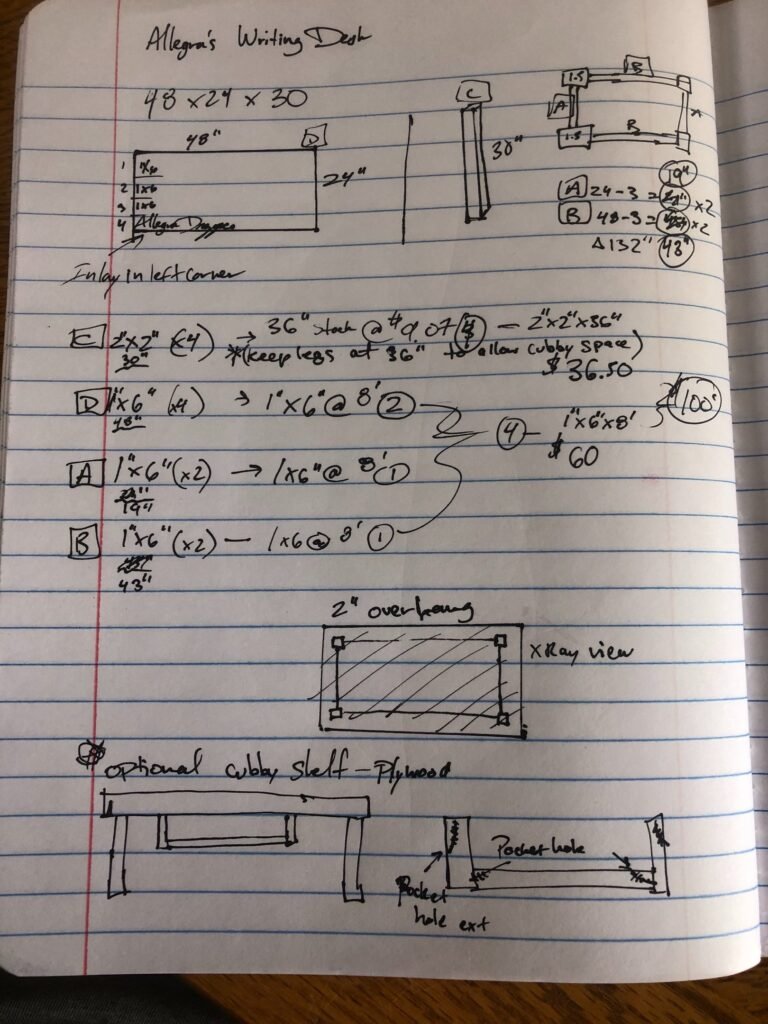 Allegra's Writing Desk
48 x 24 x 30
48" D
24"
1 1x6
2 1x6
3 1x6
4 Allegra
Inlay in left corner
C
30"
B
1.5
A
1.5 B
19"
A 24-3 = x2
B 48-3 = x2
Δ132" 43"
C 2"x2" (x4) → 36" stock @ $9.07 4 — 2"x2"x36"
30" *(keep legs at 36" to allow cubby space)
$36.50
D 1"x6" (x4) → 1"x6" @ 8' 2
48"
4 — 1"x6"x8' $100'
$60
A 1"x6" (x2) → 1x6" @ 8' 1
19"
B 1"x6" (x2) — 1x6 @ 8' 1
43"
2" overhang
XRay view
optional cubby shelf - Plywood
Pocket hole
Pocket
hole ext